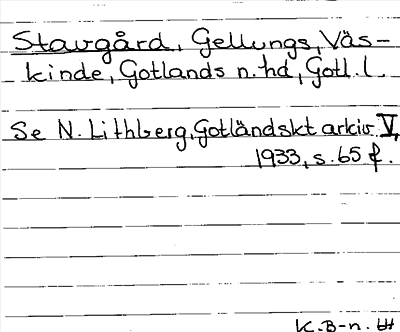 Stavgård, Gellungs, Väs-
kinde, Gotlands n. hd, Gotl. l.
Se N. Lithberg, Gotländskt arkiv V,
1933, s. 65 f.
K. B-n.